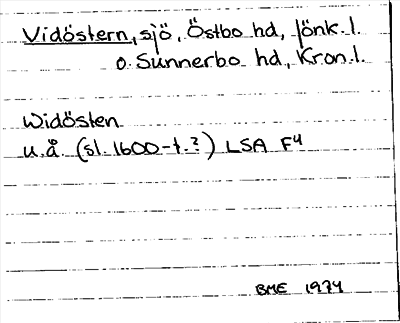 Vidöstern, sjö, Östbo hd, Jönk. l.
o. Sunnerbo hd, Kron. l.
Widösten
u.å. (sl. 1600-t.?) LSA F4
BME 1974